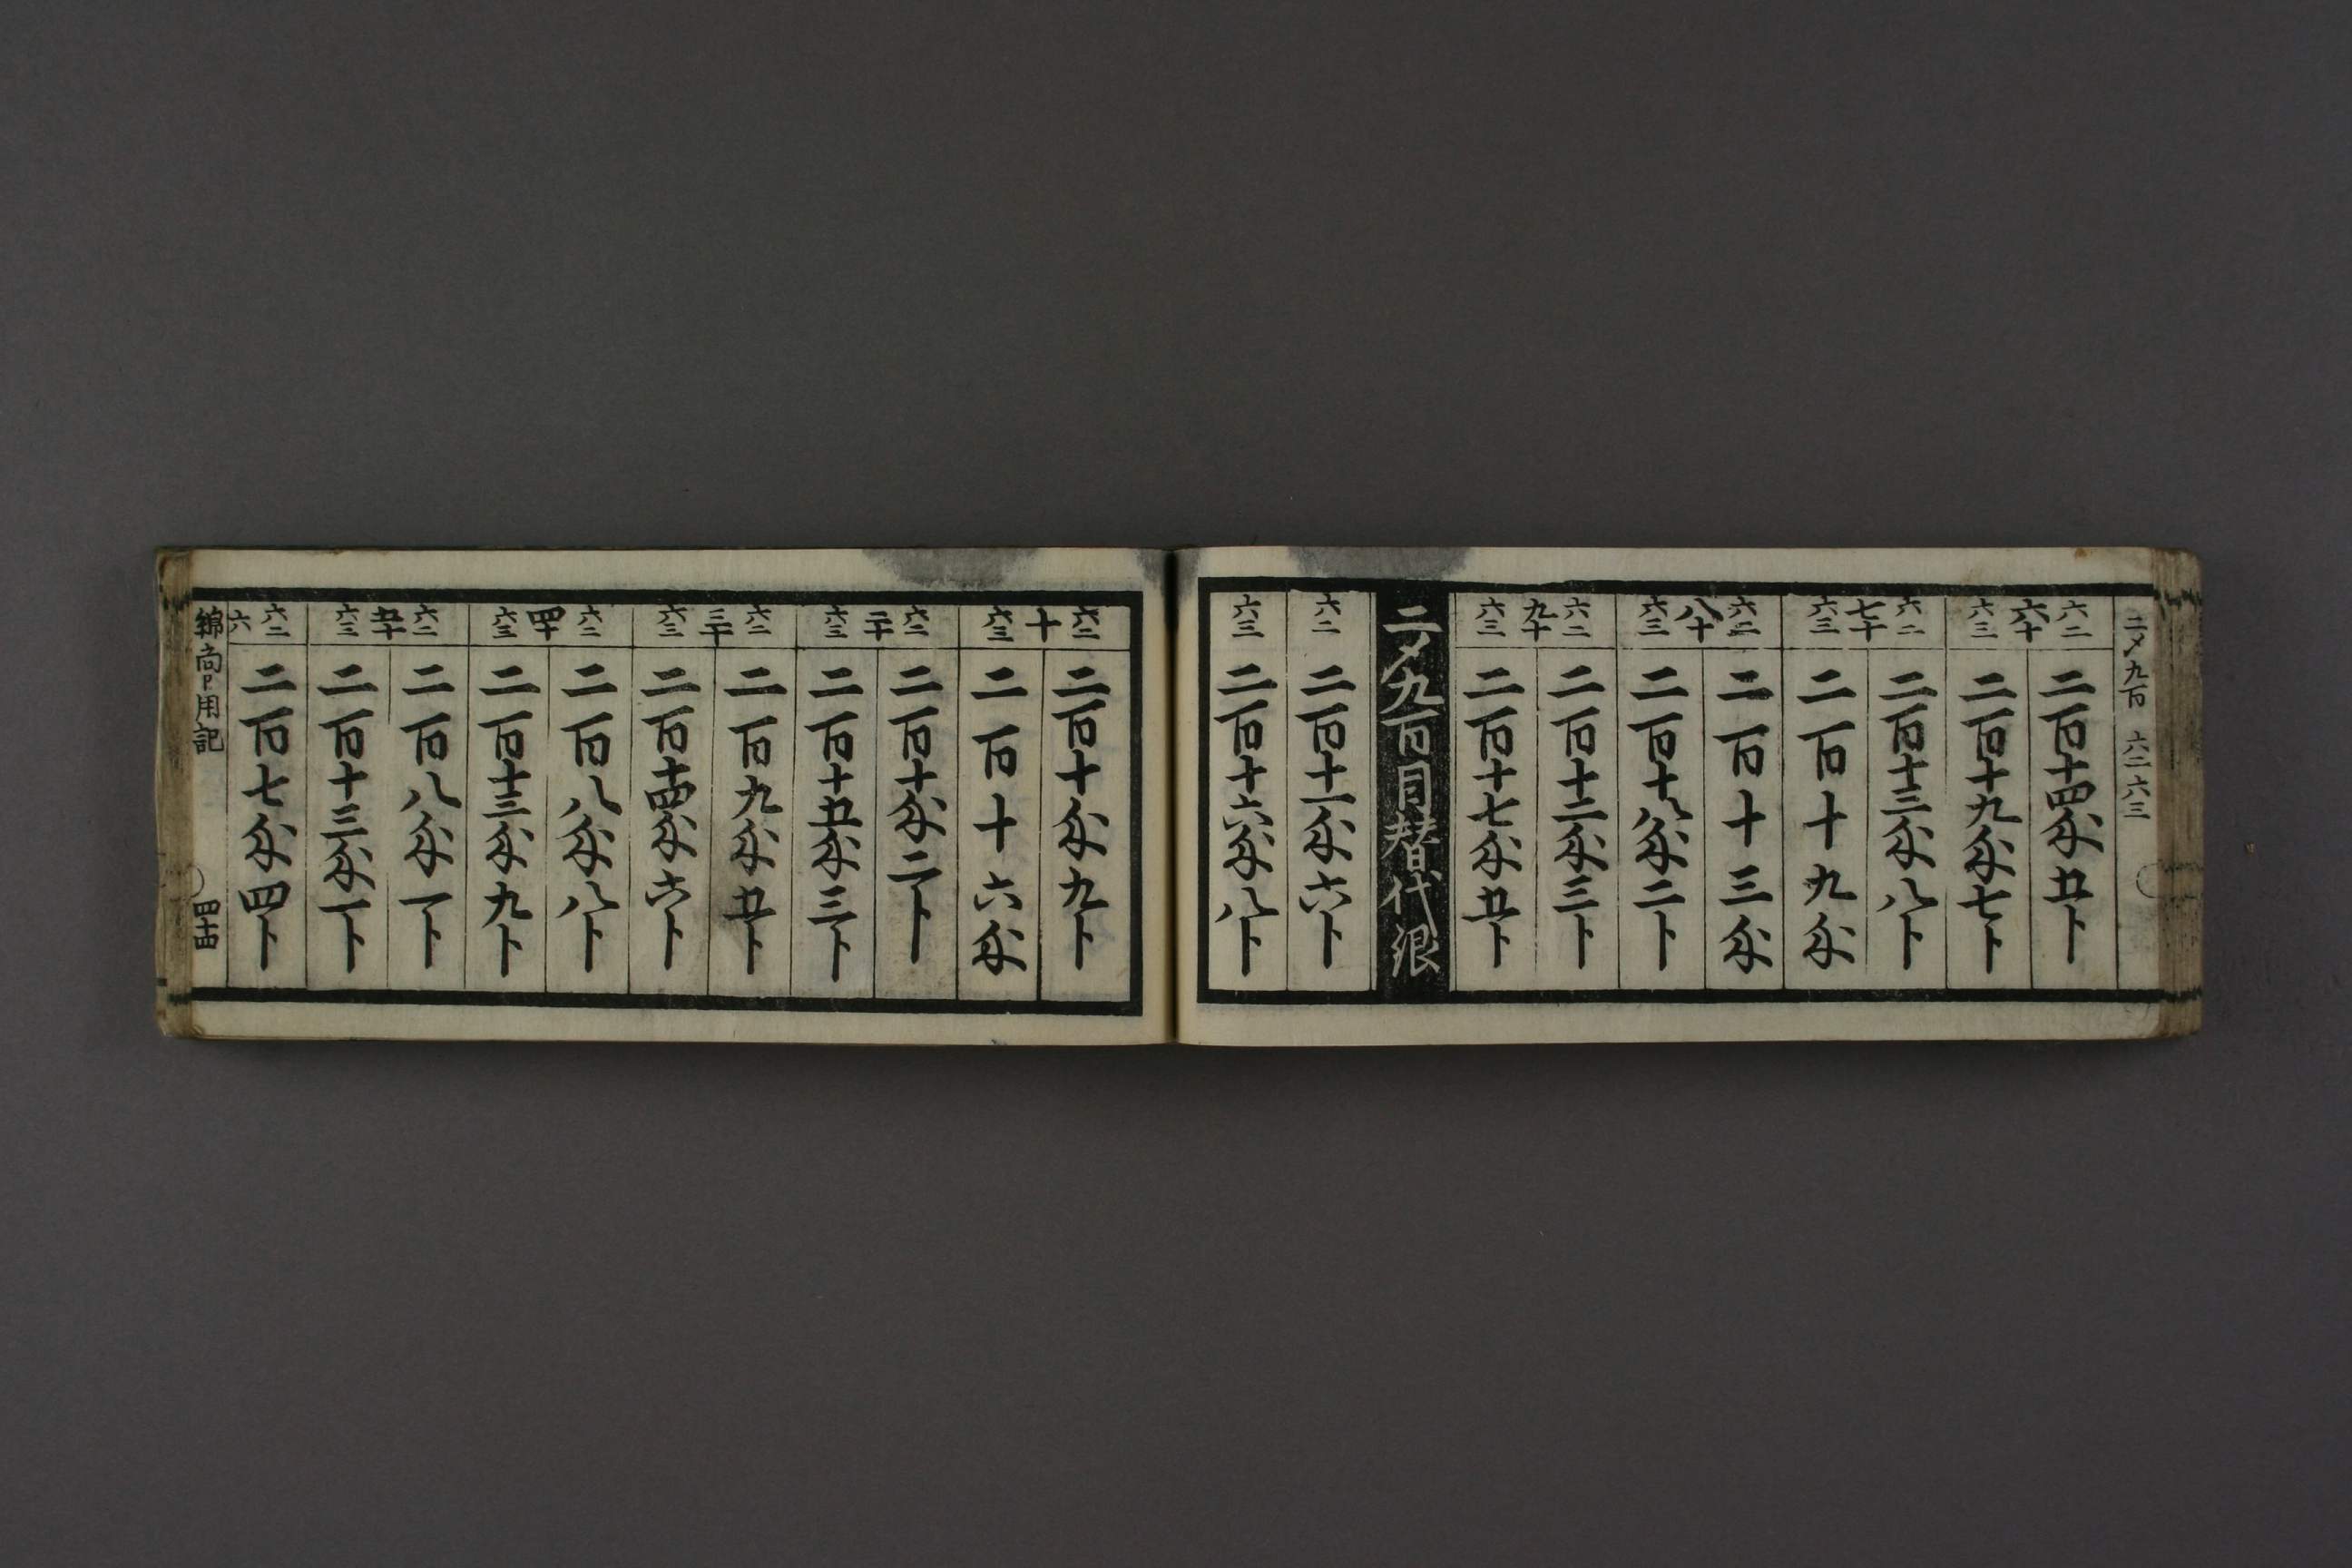 二〆九百　六二六三
六二　六十　六三
二百十四匁五卜
二百十九匁七卜
六二　七十　六三
二百十三匁八卜
二百十九匁
六二　八十　六三
二百十三匁
二百十八匁二卜
六二　九十　六三
二百十二匁三卜
二百十七匁五卜
二〆九百目替代銀
六二　二百十一匁六卜
六三　二百十六匁八卜
六二　十　六三
二百十匁九卜
二百十六匁
六二　二十　六三
二百十匁二卜
二百十五匁三卜
六二　三十　六三
二百九匁五卜
二百十四匁六卜
六二　四十　六三
二百八匁八卜
二百十三匁九卜
六二　五十　六三
二百八匁一卜
二百十三匁一卜
六二　六
二百七匁四卜
用記　四十四